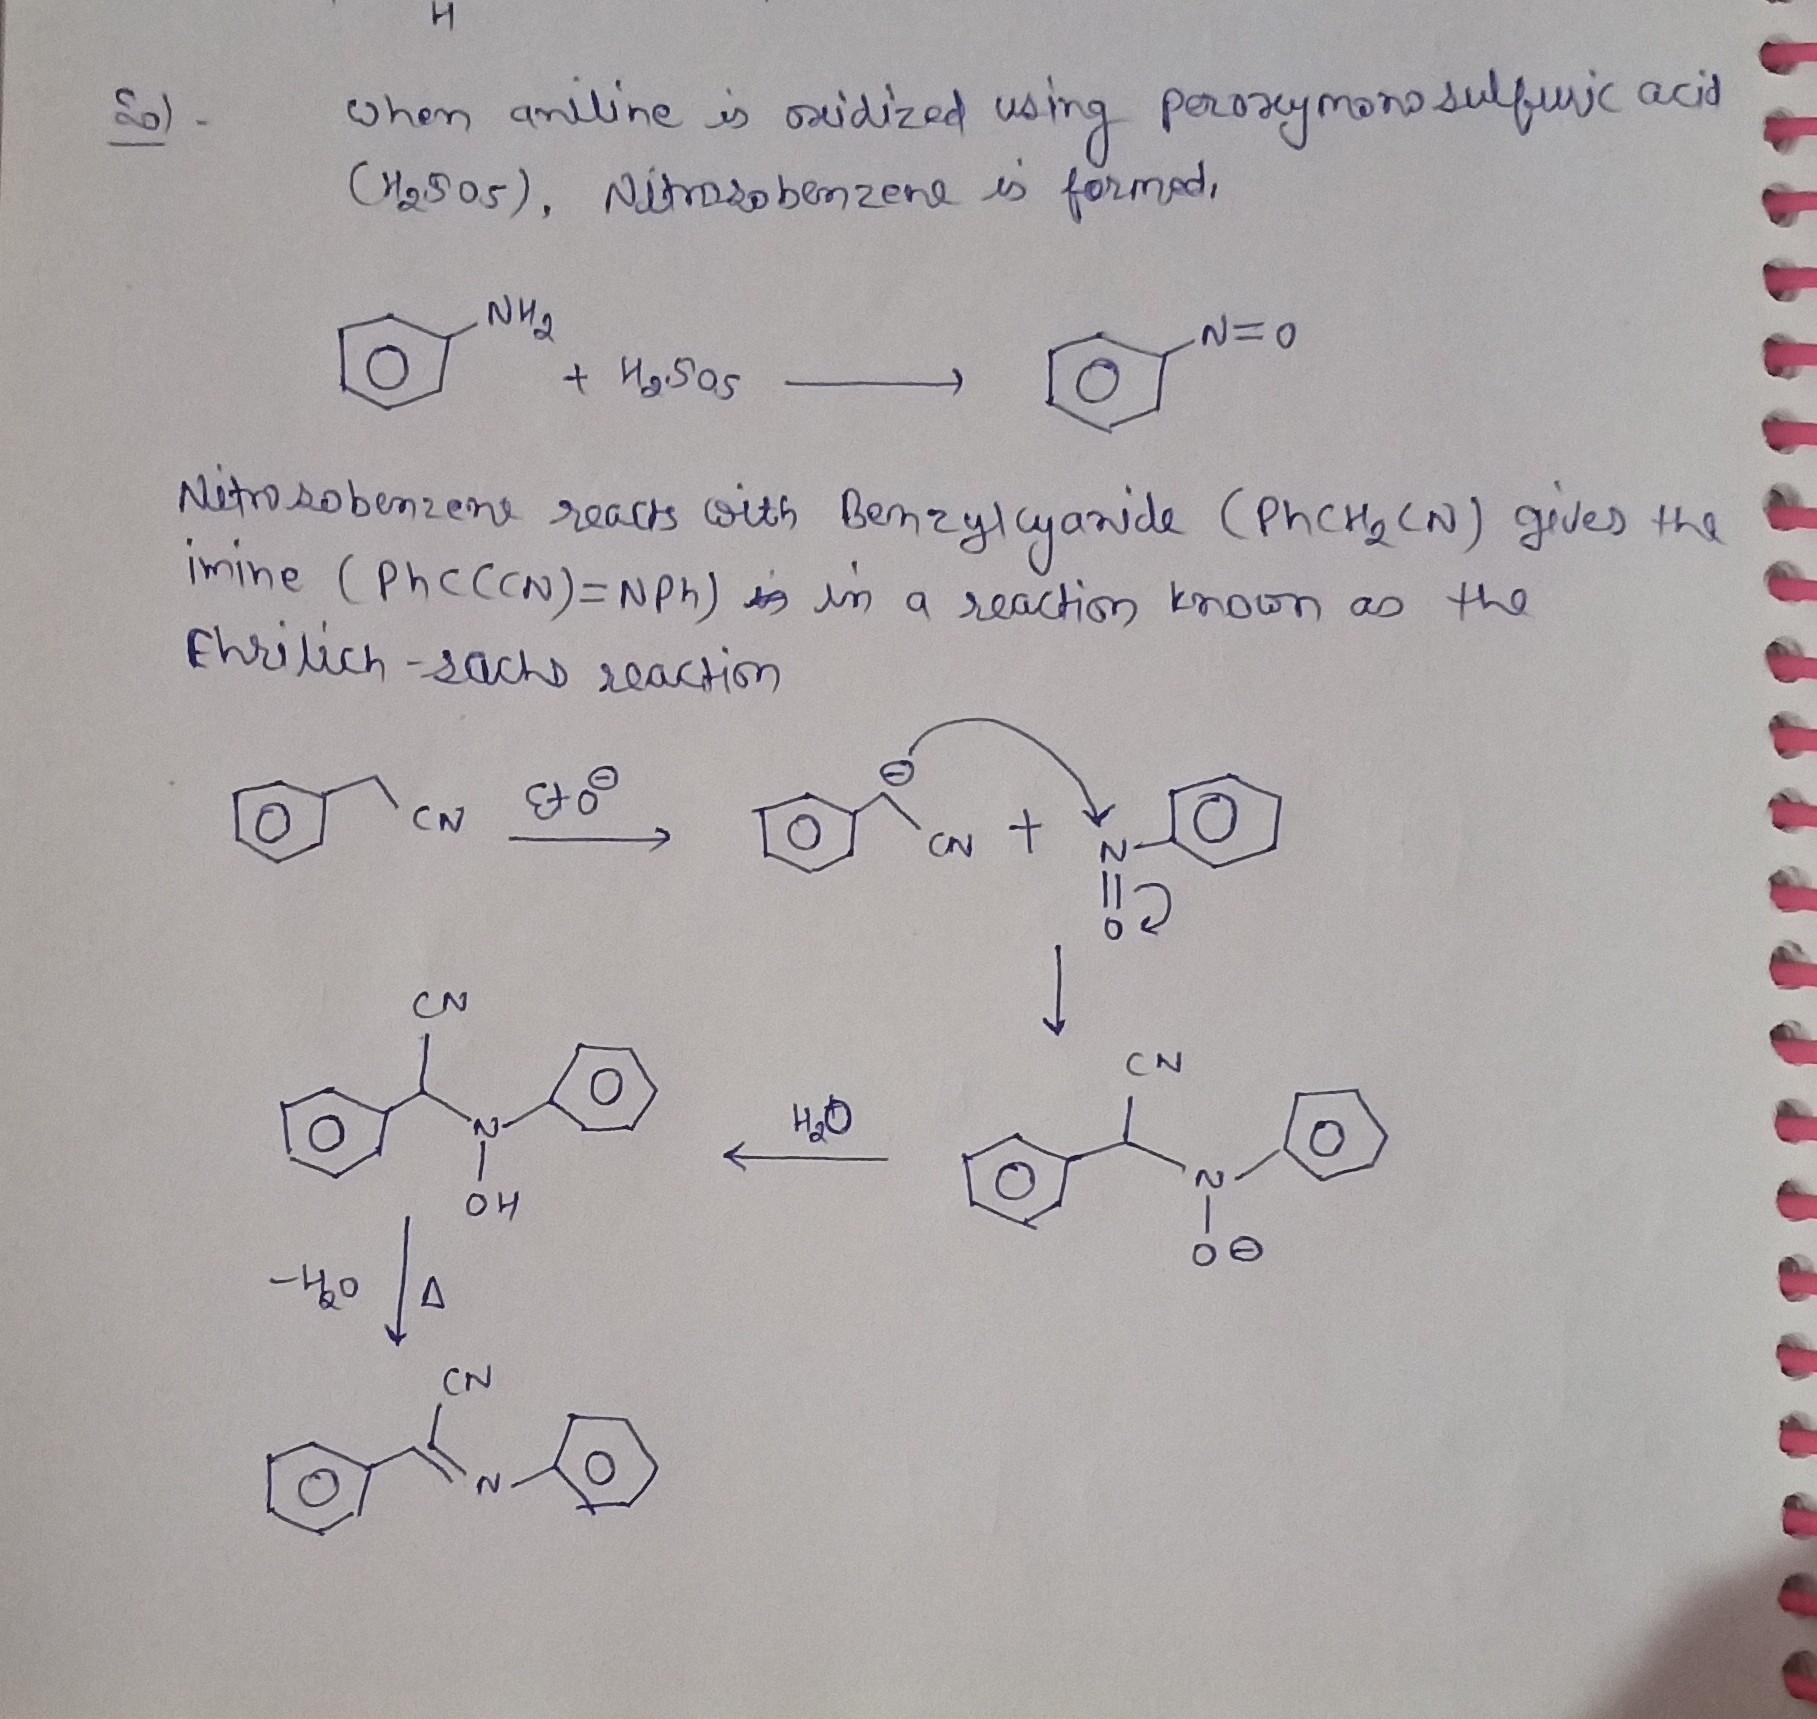 H
Sol -
When aniline is oxidized using peroxymonosulfuric acid
(H2SO5), Nitrosobenzene is formed.
NH2
+ H2SO5
N=O
Nitrosobenzene reacts with Benzylcyanide (PhCH2CN) gives the
imine (PhC(CN)=NPh) in a reaction known as the
Ehrilich-sachs reaction
CN
EtO⊖
⊖
CN + N
O
CN
N
O⊖
H2O
CN
N
OH
-H2O Δ
CN
N